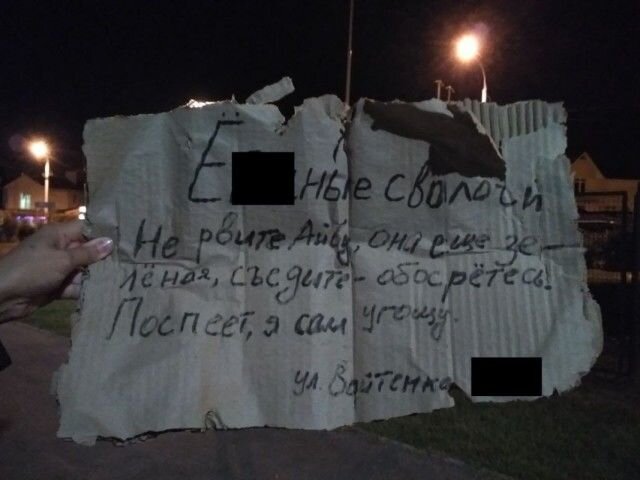 Ё ные сволочи
Не рвите Айву, она еще зе-
лёная, съедите - обосрётесь!
Поспеет, я сам угощу.
ул. Войтенко